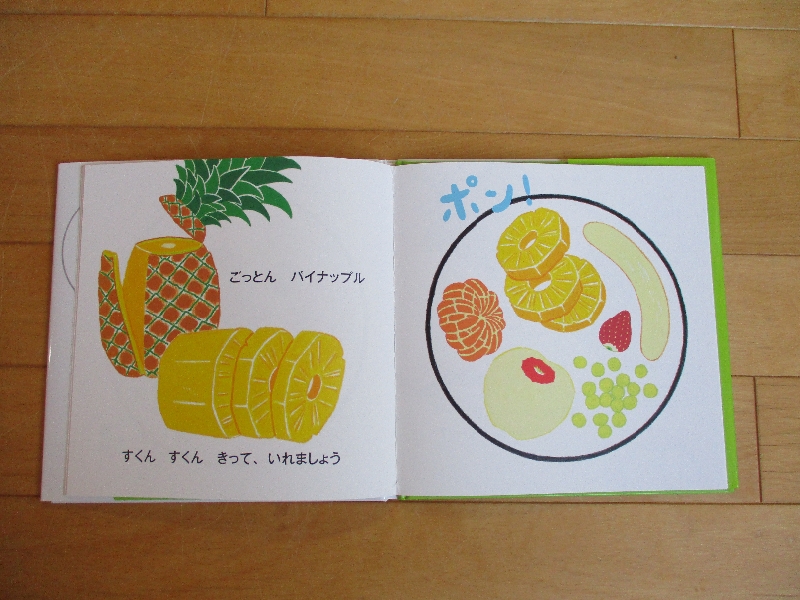 ごっとん パイナップル
すくん すくん きって、いれましょう
ポン!